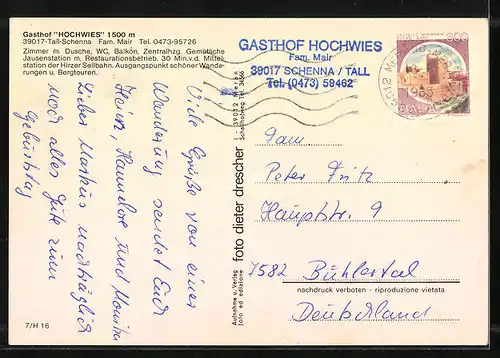 Gasthof "HOCHWIES" 1500 m
39017-Tall-Schenna Fam. Mair Tel. 0473-95726
Zimmer m. Dusche, WC, Balkon, Zentralhzg. Gemütliche
Jausenstation m. Restaurationsbetrieb. 30 Min.v.d. Mittel-
station der Hirzer Seilbahn. Ausgangspunkt schöner Wande-
rungen u. Bergtouren.
Viele Grüße von einer
Wanderung sendet Euch
Heinz, Hannelore und Monika
Lieber Markus nachträglich
noch alles Gute zum
Geburtstag
7/H 16
Aufnahme u. Verlag
foto ed edizione
foto dieter drescher
I - 39012 Meran
GASTHOF HOCHWIES
Fam. Mair
39017 SCHENNA / TALL
Tel. (0473) 59462
39012
ITALIA
Fam.
Peter Fritz
Hauptstr. 9
7582 Bühlertal
nachdruck verboten - riproduzione vietata
Deutschland